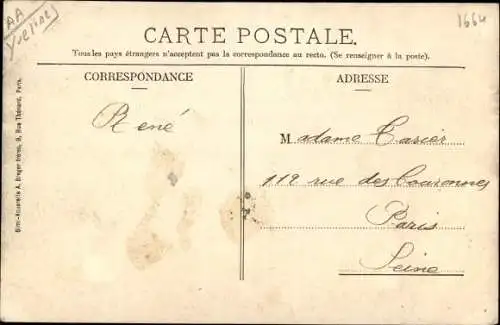 AA
Yvelines
1664
CARTE POSTALE.
Tous les pays étrangers n'acceptent pas la correspondance au recto. (Se renseigner à la poste).
CORRESPONDANCE
ADRESSE
René
Madame Carier
119 rue des Couronnes
Paris
Seine
A. Breger frères, 9, Rue Thénard, Paris.